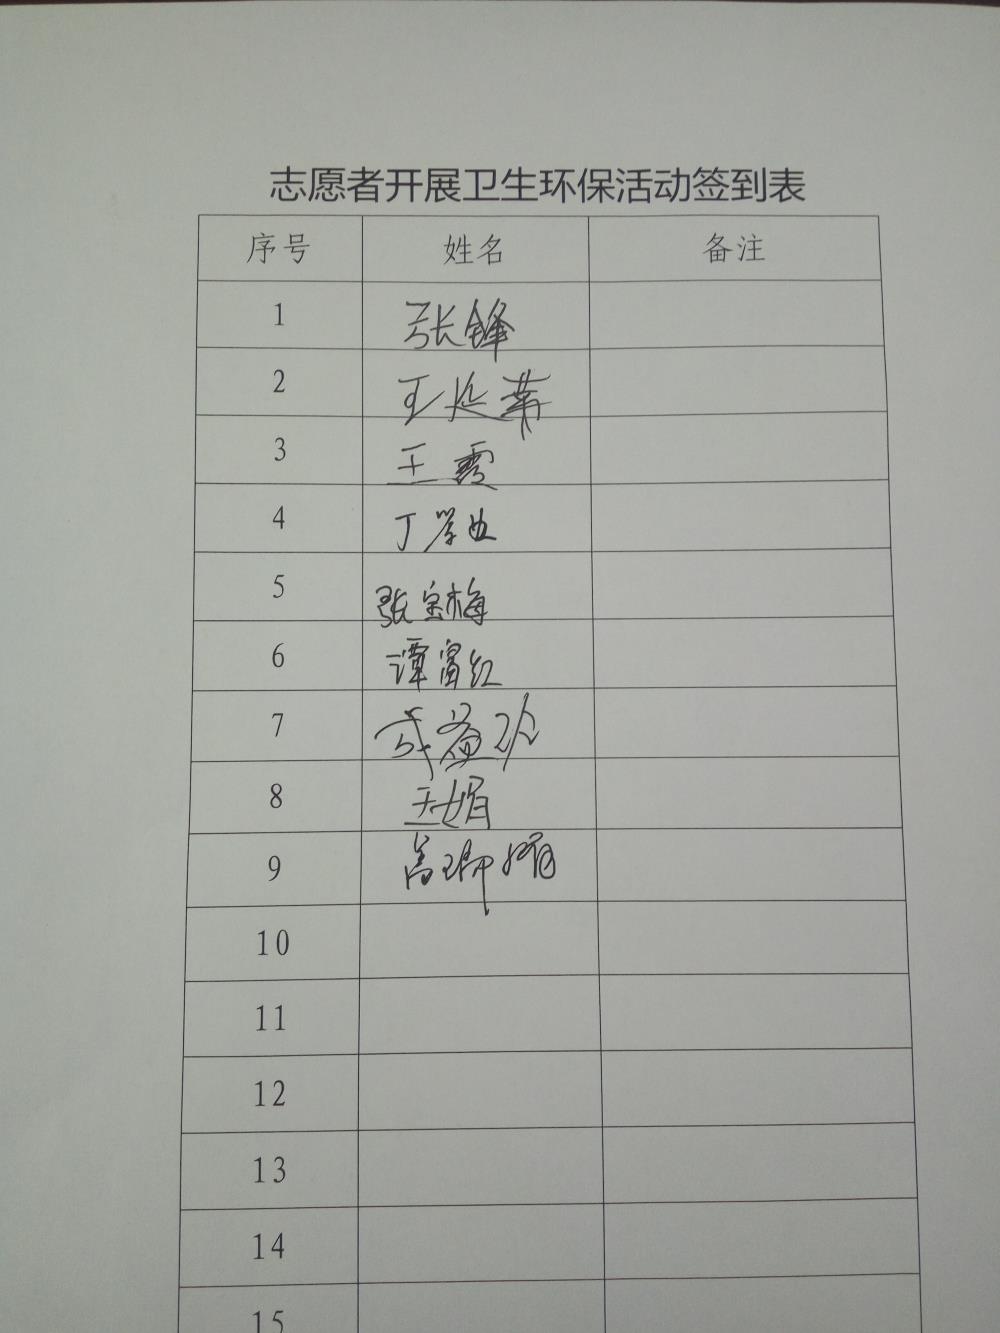 志愿者开展卫生环保活动签到表
序号 姓名 备注
1 张锋
2 王延
3 王霞
4 丁学
5 张宝梅
6 谭富红
7 成益
8 王娟
9 高
10
11
12
13
14
15